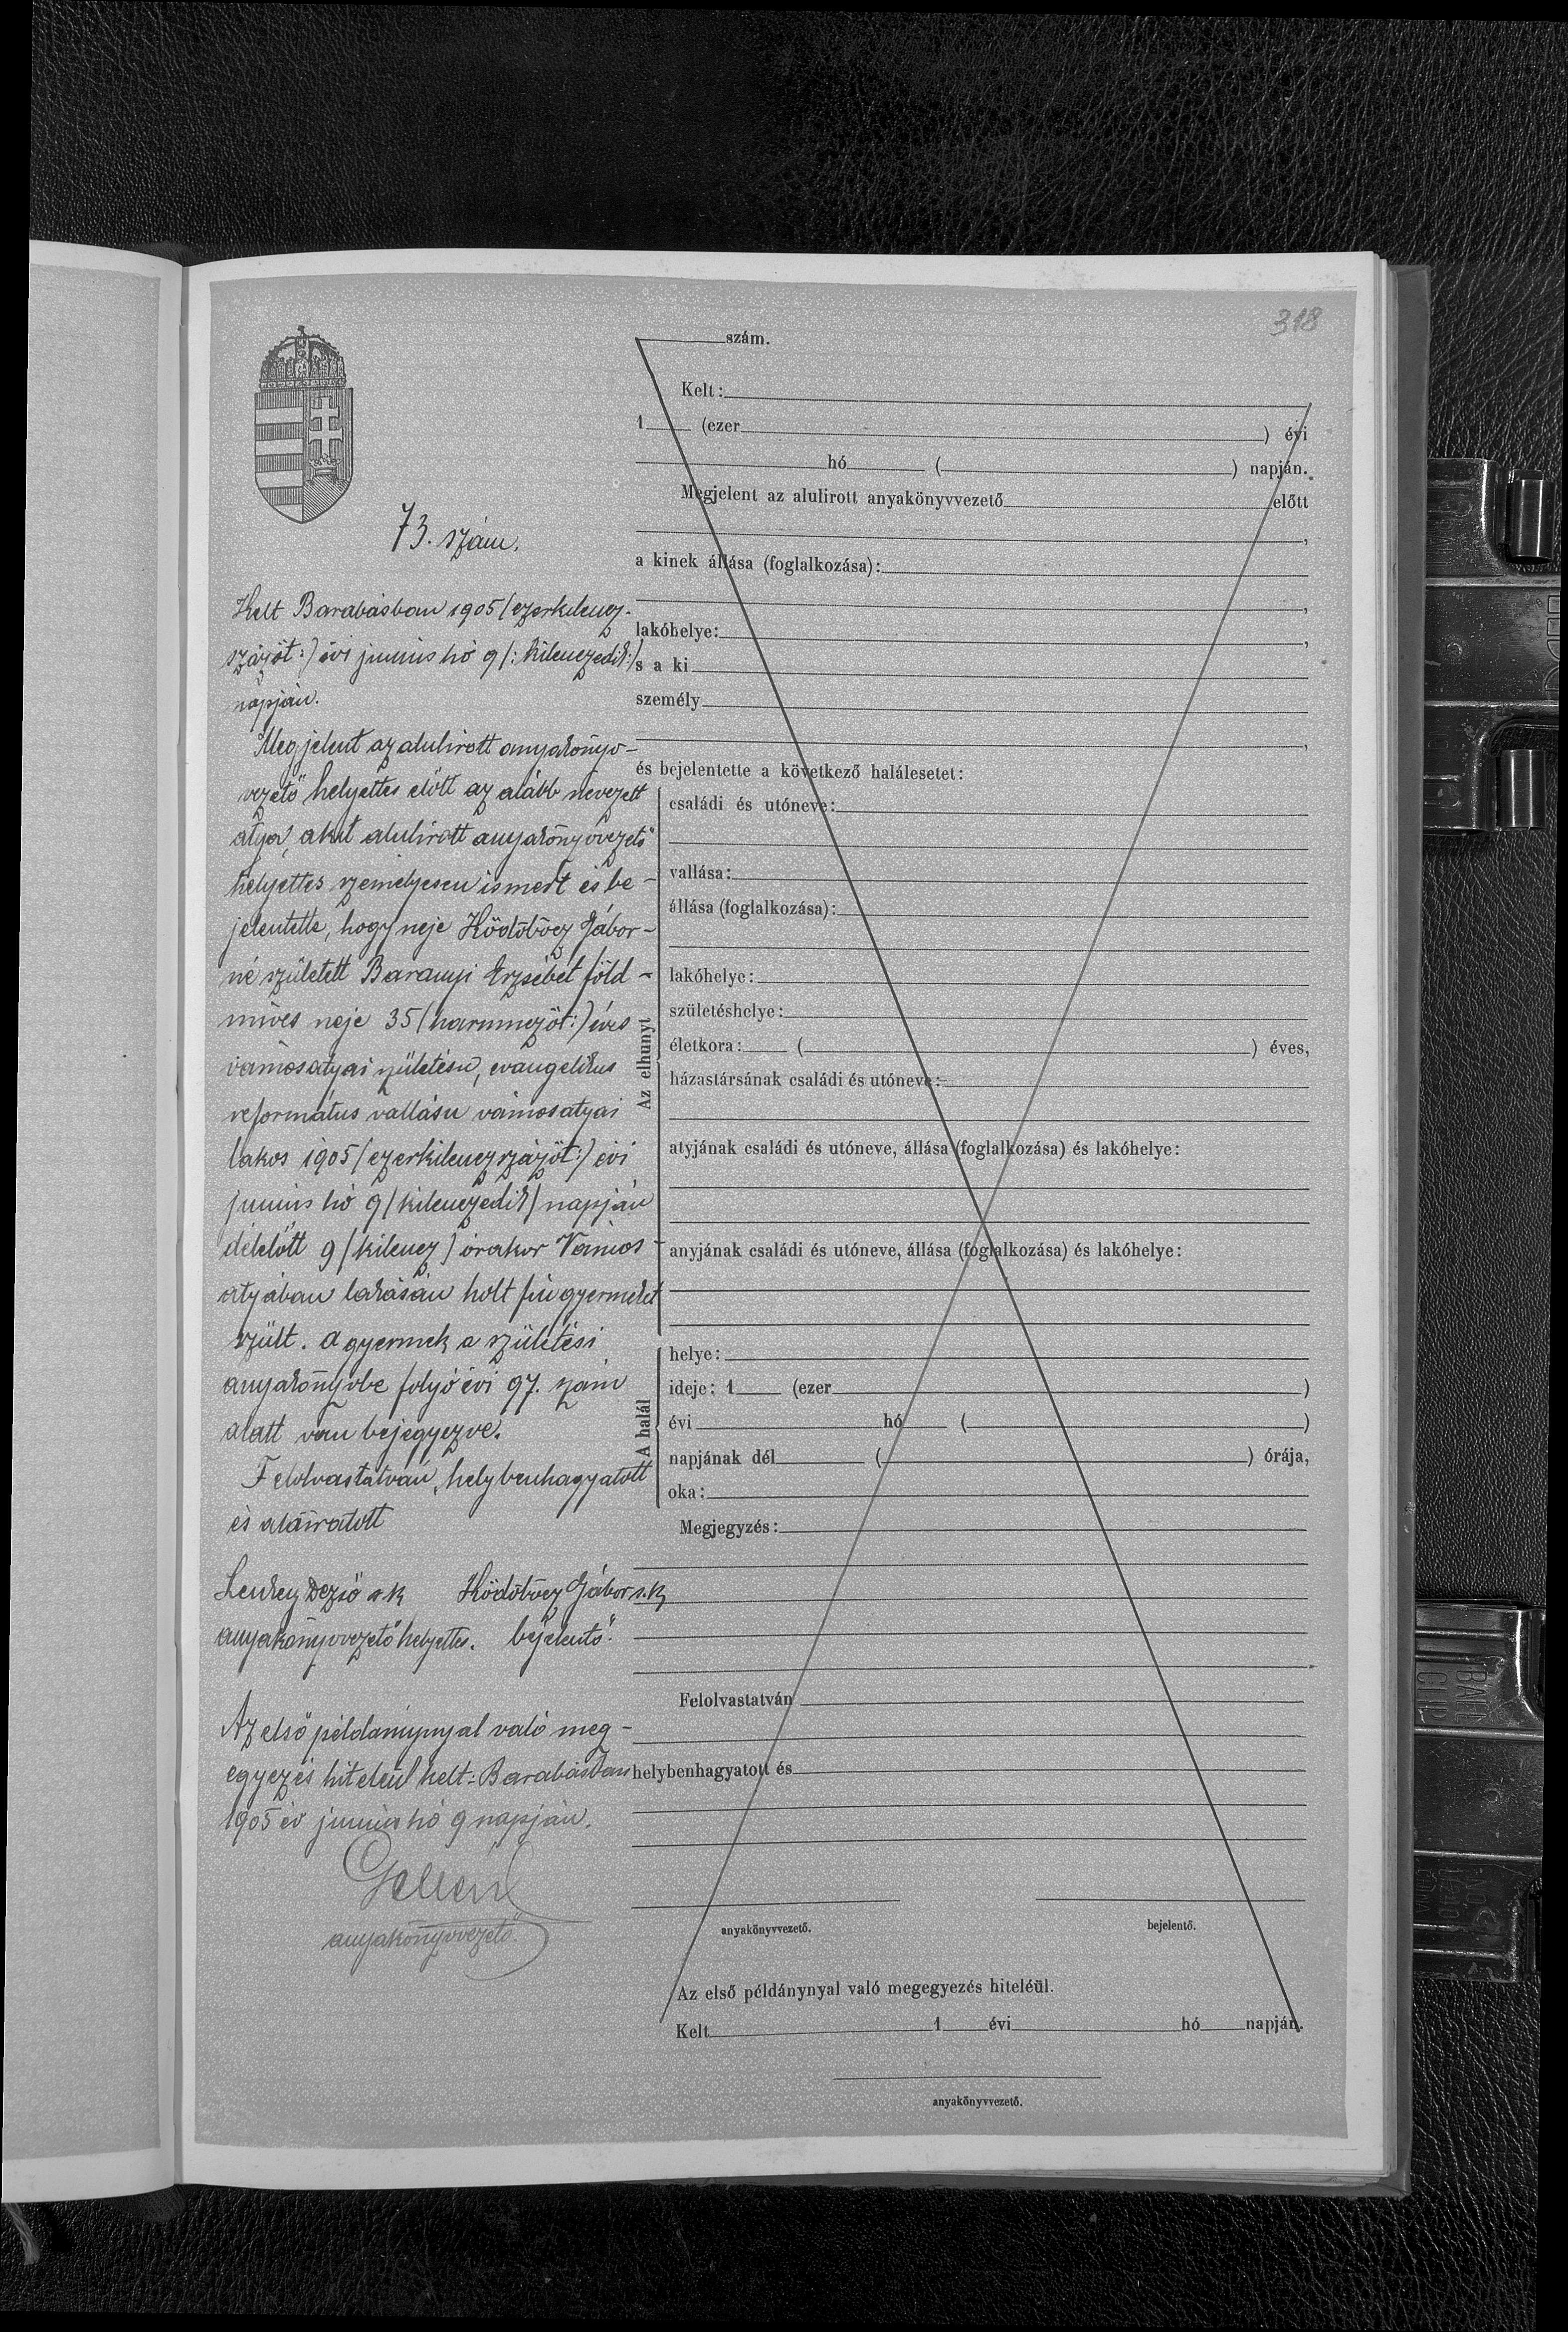 318
73. szám.
Kelt Barabásban 1905 (ezerkilencz-
százöt:) évi junius hó 9 (: kilenczedik:)
napján.
Megjelent az alulirott anyakönyv-
vezető helyettes előtt az alább nevezett
atya, akit alulirott anyakönyvvezető
helyettes személyesen ismert és be-
jelentette, hogy neje Ködöböcz Gábor-
né született Baranyi Erzsébet föld-
míves neje 35 (harminczöt:) éves
vámosatyai születésü, evangelikus
református vallásu vámosatyai
lakos 1905 (ezerkilenczszázöt:) évi
junius hó 9 (kilenczedik) napján
délelőtt 9 (kilencz) órakor Vámos-
atyában lakásán holt fiú gyermeket
szült. A gyermek a születési
anyakönyvbe folyó évi 97. szám
alatt van bejegyezve.
Felolvastatván, helybenhagyatott
és aláiratott
Dezső s.k. Ködöböcz Gábor s.k.
anyakönyvvezető helyettes. bejelentő.
Az első példánynyal való meg-
egyezés hiteléül kelt: Barabásban
1905 év junius hó 9 napján.
anyakönyvvezető
szám.
Kelt:
1 (ezer ) évi
hó ( ) napján.
Megjelent az alulirott anyakönyvvezető előtt
,
a kinek állása (foglalkozása):
,
lakóhelye: ,
s a ki
személy
,
és bejelentette a következő halálesetet:
Az elhunyt
családi és utóneve:
vallása:
állása (foglalkozása):
lakóhelye:
születéshelye:
életkora: ( ) éves,
házastársának családi és utóneve:
atyjának családi és utóneve, állása (foglalkozása) és lakóhelye:
anyjának családi és utóneve, állása (foglalkozása) és lakóhelye:
A halál
helye:
ideje: 1 (ezer )
évi hó ( )
napjának dél ( ) órája,
oka:
Megjegyzés:
Felolvastatván
helybenhagyatott és
anyakönyvvezető. bejelentő.
Az első példánynyal való megegyezés hiteléül.
Kelt 1 évi hó napján.
anyakönyvvezető.